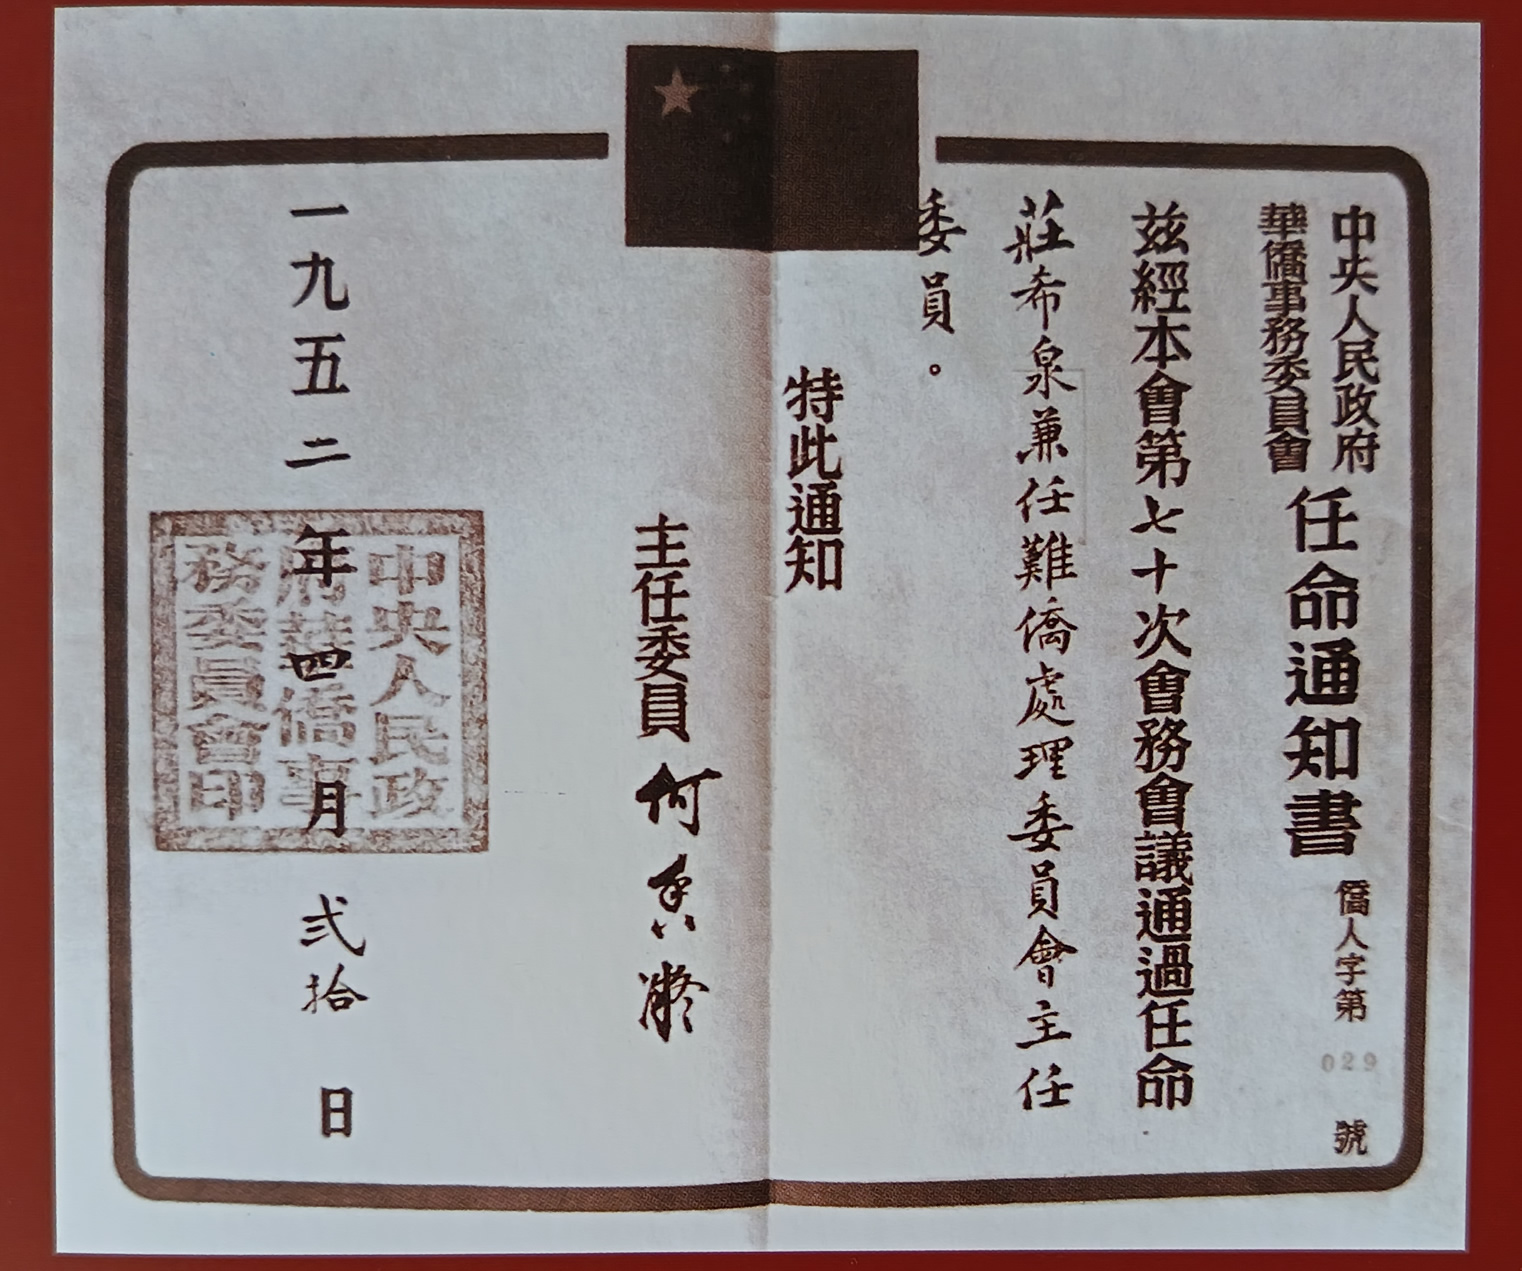 中央人民政府
華僑事務委員會
任命通知書
僑人字第029號
茲經本會第七十次會務會議通過任命
莊希泉兼任難僑處理委員會主任
委員。
特此通知
主任委員何香凝
一九五二年四月弍拾日
中央人民政
府華僑事
務委員會印